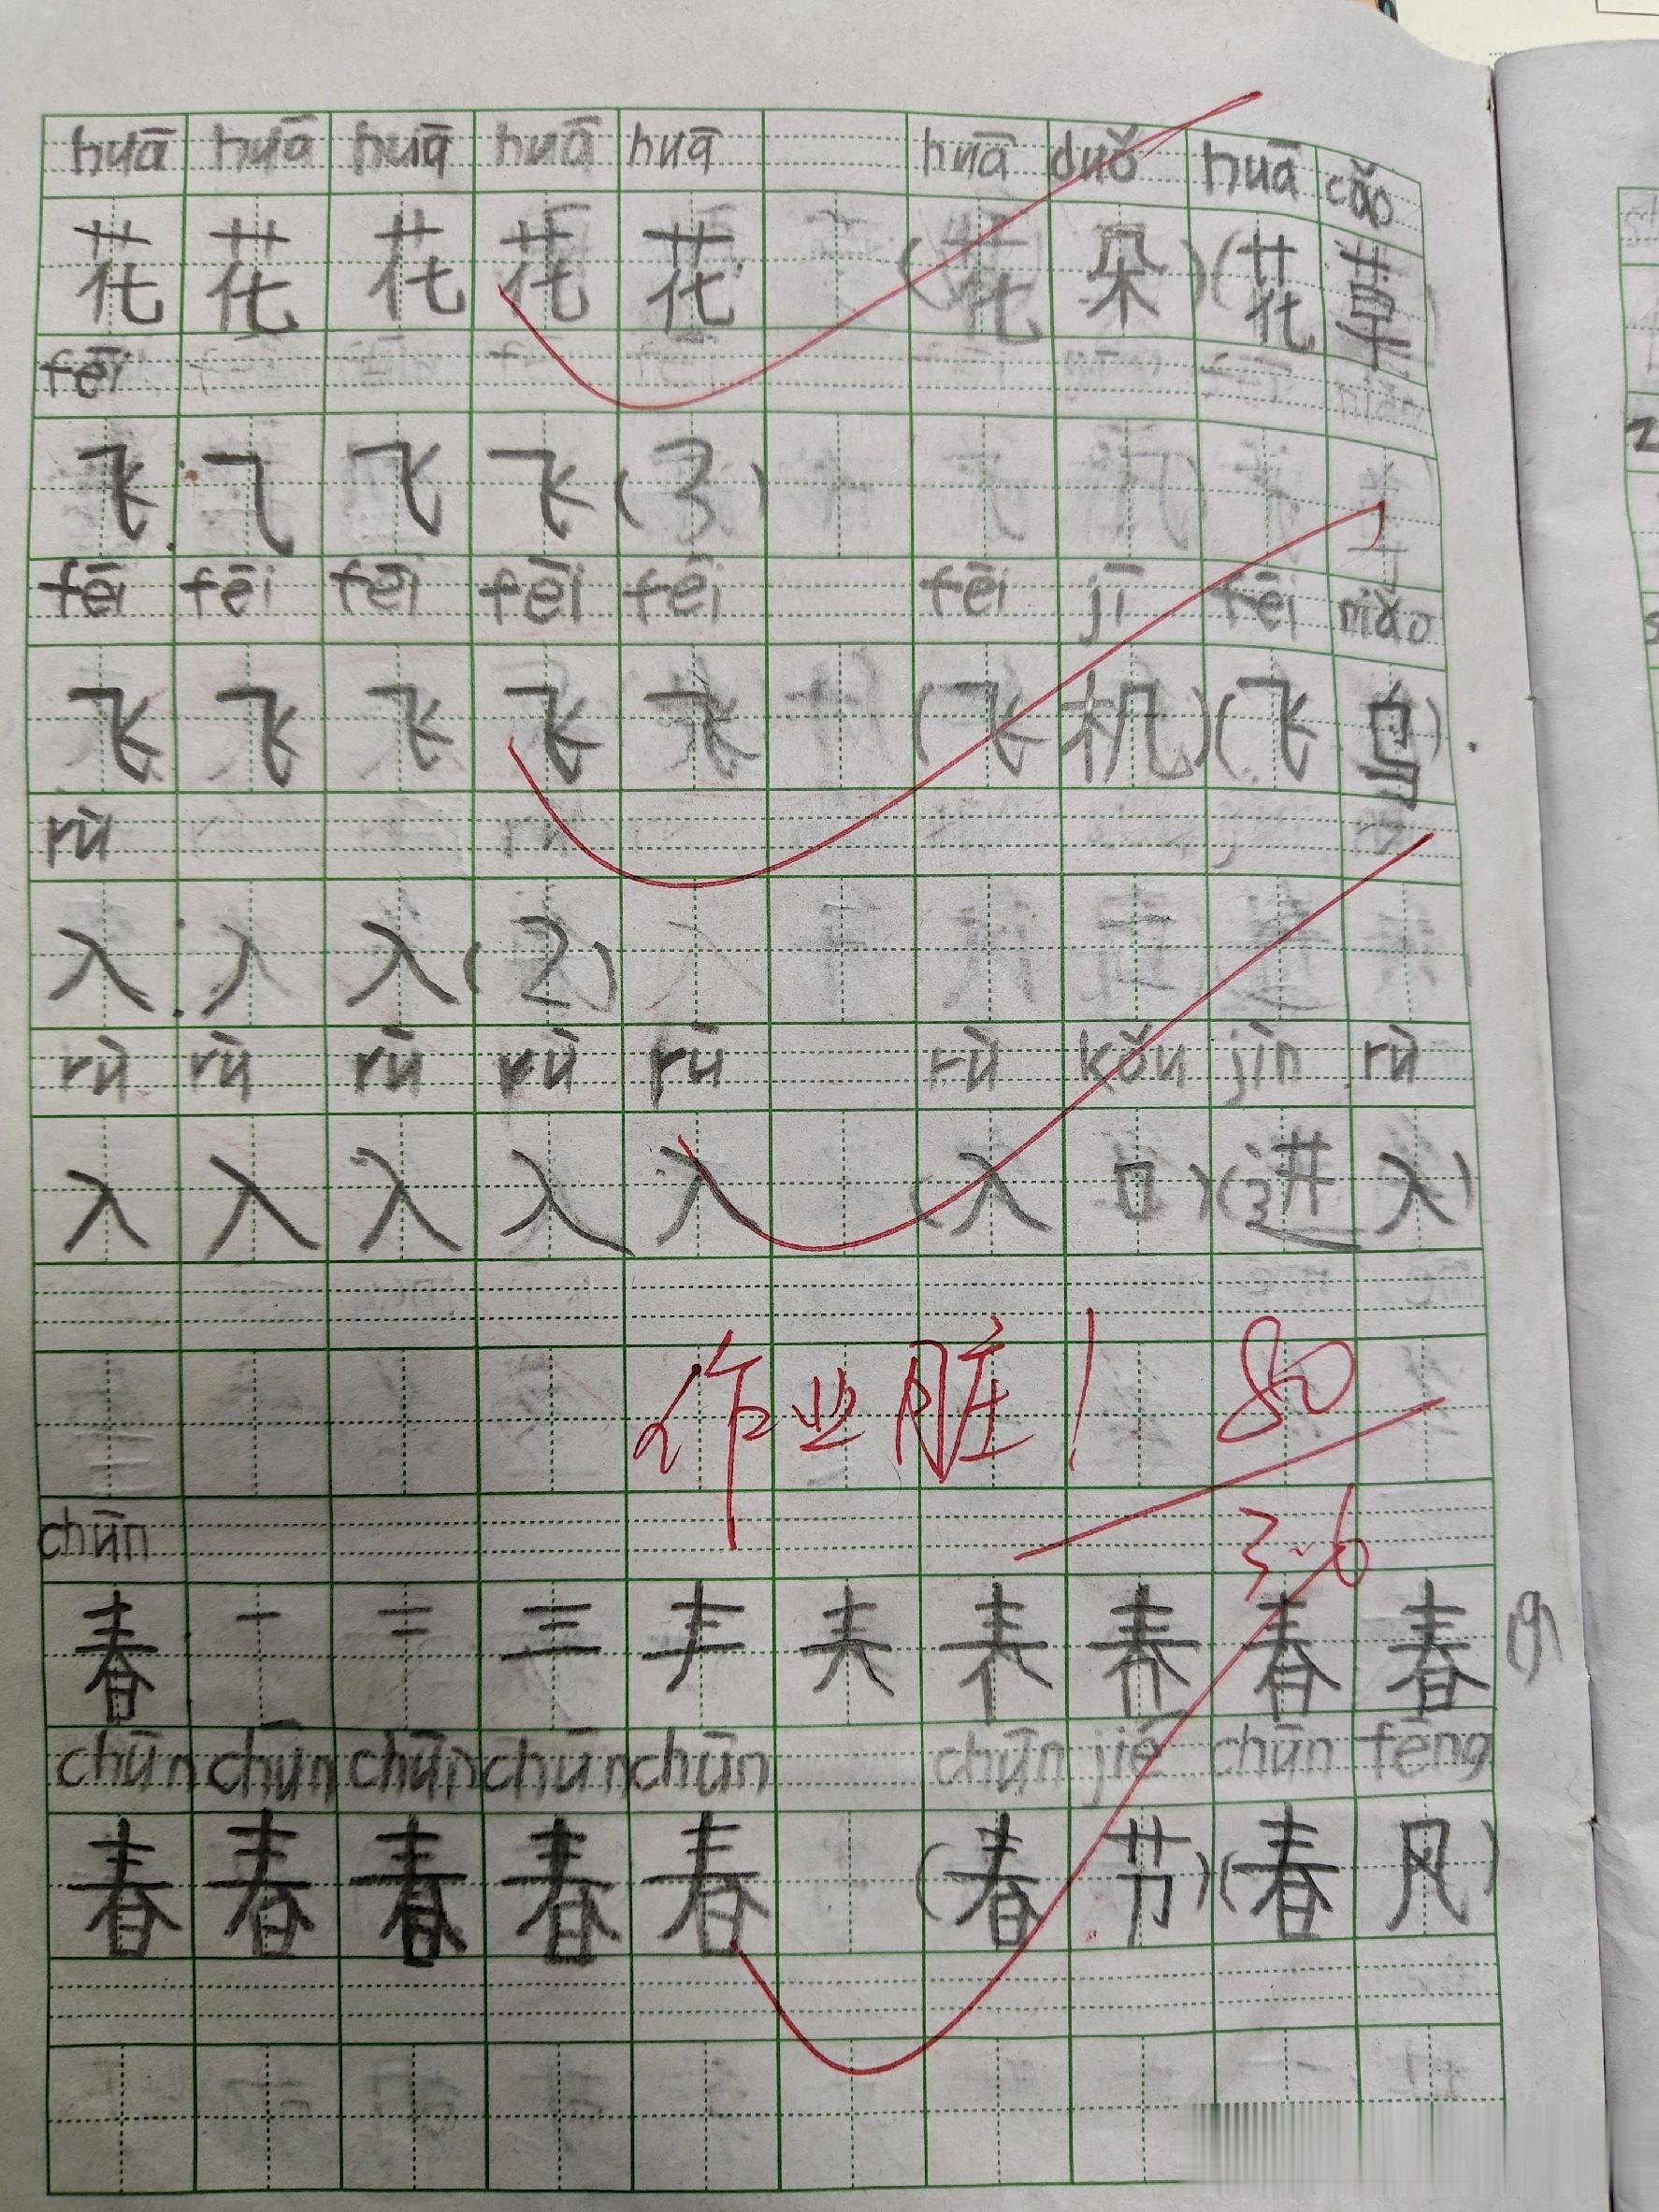 huā huā huā huā huā huā duǒ huā cǎo
花 花 花 花 花 (花 朵)(花 草)
fēi
飞: ㇈ 飞 飞 (3)
fēi fēi fēi fēi fēi fēi jī fēi niǎo
飞 飞 飞 飞 飞 (飞 机)(飞 鸟)
rù
入: 丿 入 (2)
rù rù rù rù rù rù kǒu jìn rù
入 入 入 入 入 (入 口)(进 入)
作业脏! 80
3.6
chūn
春 一 二 三 𡗗 春 春 (9)
chūn chūn chūn chūn chūn chūn jié chūn fēng
春 春 春 春 春 (春 节)(春 风)